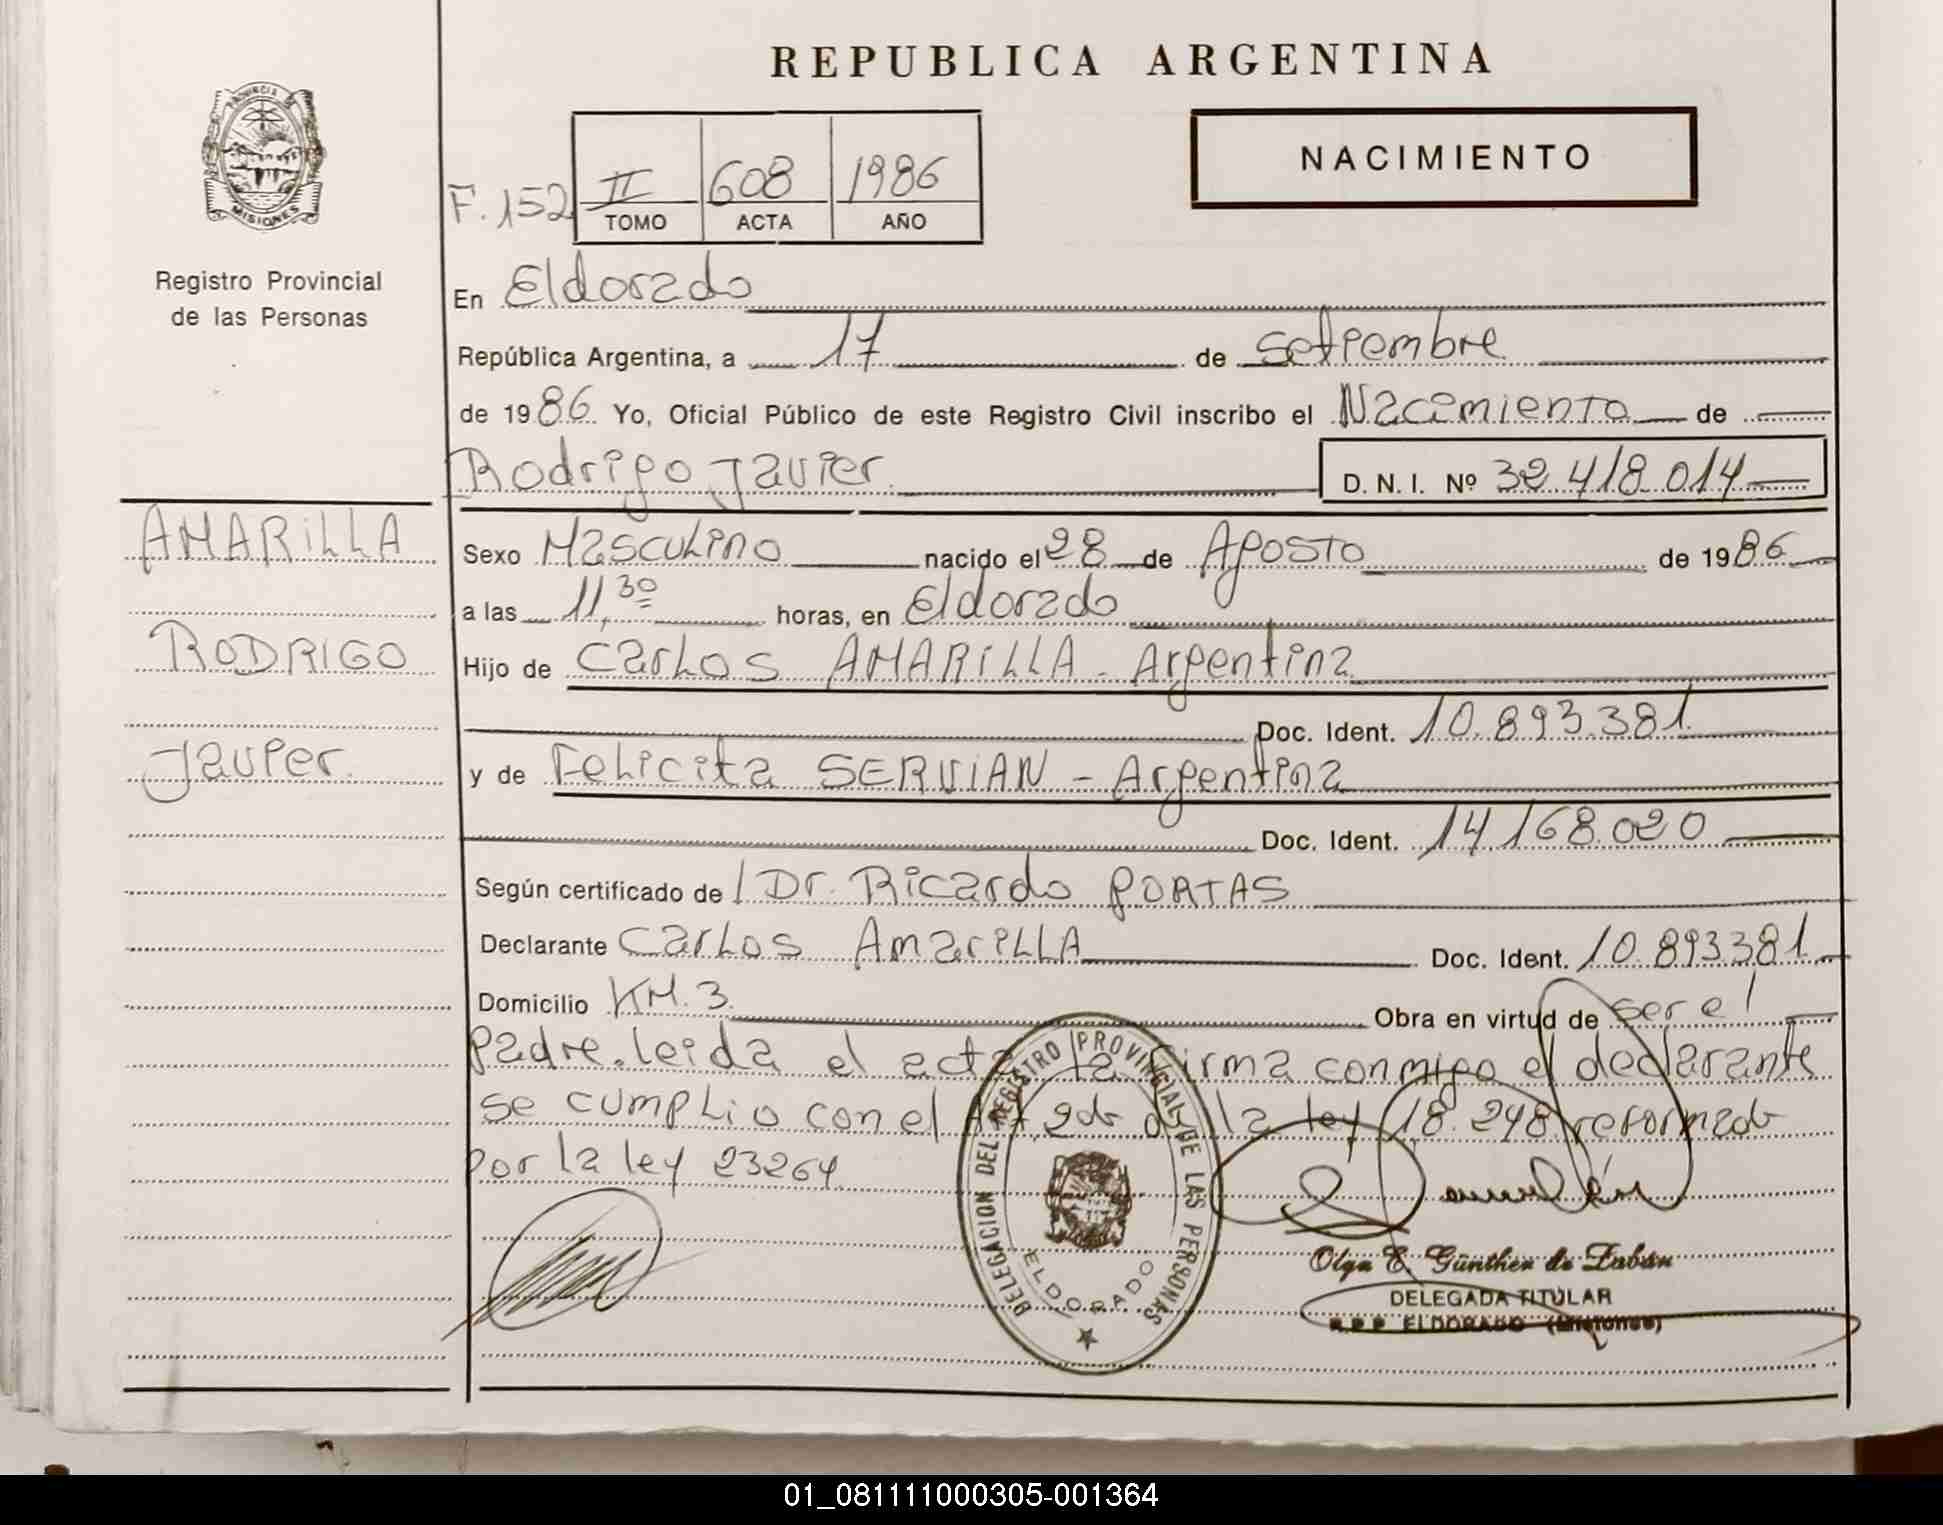 REPUBLICA ARGENTINA
PROVINCIA DE
MISIONES
Registro Provincial
de las Personas
NACIMIENTO
F. 152
II 608 1986
TOMO ACTA AÑO
En Eldorado
República Argentina, a 17 de setiembre
de 1986 Yo, Oficial Público de este Registro Civil inscribo el Nacimiento de
Rodrigo Javier
D. N. I. Nº 32.418.014
AMARILLA
RODRIGO
Javier.
Sexo Masculino nacido el 28 de Agosto de 1986
a las 11,30 horas, en Eldorado
Hijo de Carlos AMARILLA - Argentina
Doc. Ident. 10.893.381
y de Felicita SERVIAN - Argentina
Doc. Ident. 14.168.020
Según certificado de Dr. Ricardo PORTAS
Declarante Carlos AmariLLA Doc. Ident. 10.893.381
Domicilio KM. 3. Obra en virtud de ser el
padre. leida el acta la firma conmigo el declarante
se cumplio con el Art. 2do de la ley 18.248 reformado
por la ley 23264.
DELEGACION DEL REGISTRO PROVINCIAL DE LAS PERSONAS
ELDORADO
Olga E. Günther de Zabán
DELEGADA TITULAR
R.P.P. ELDORADO (Misiones)
01_081111000305-001364